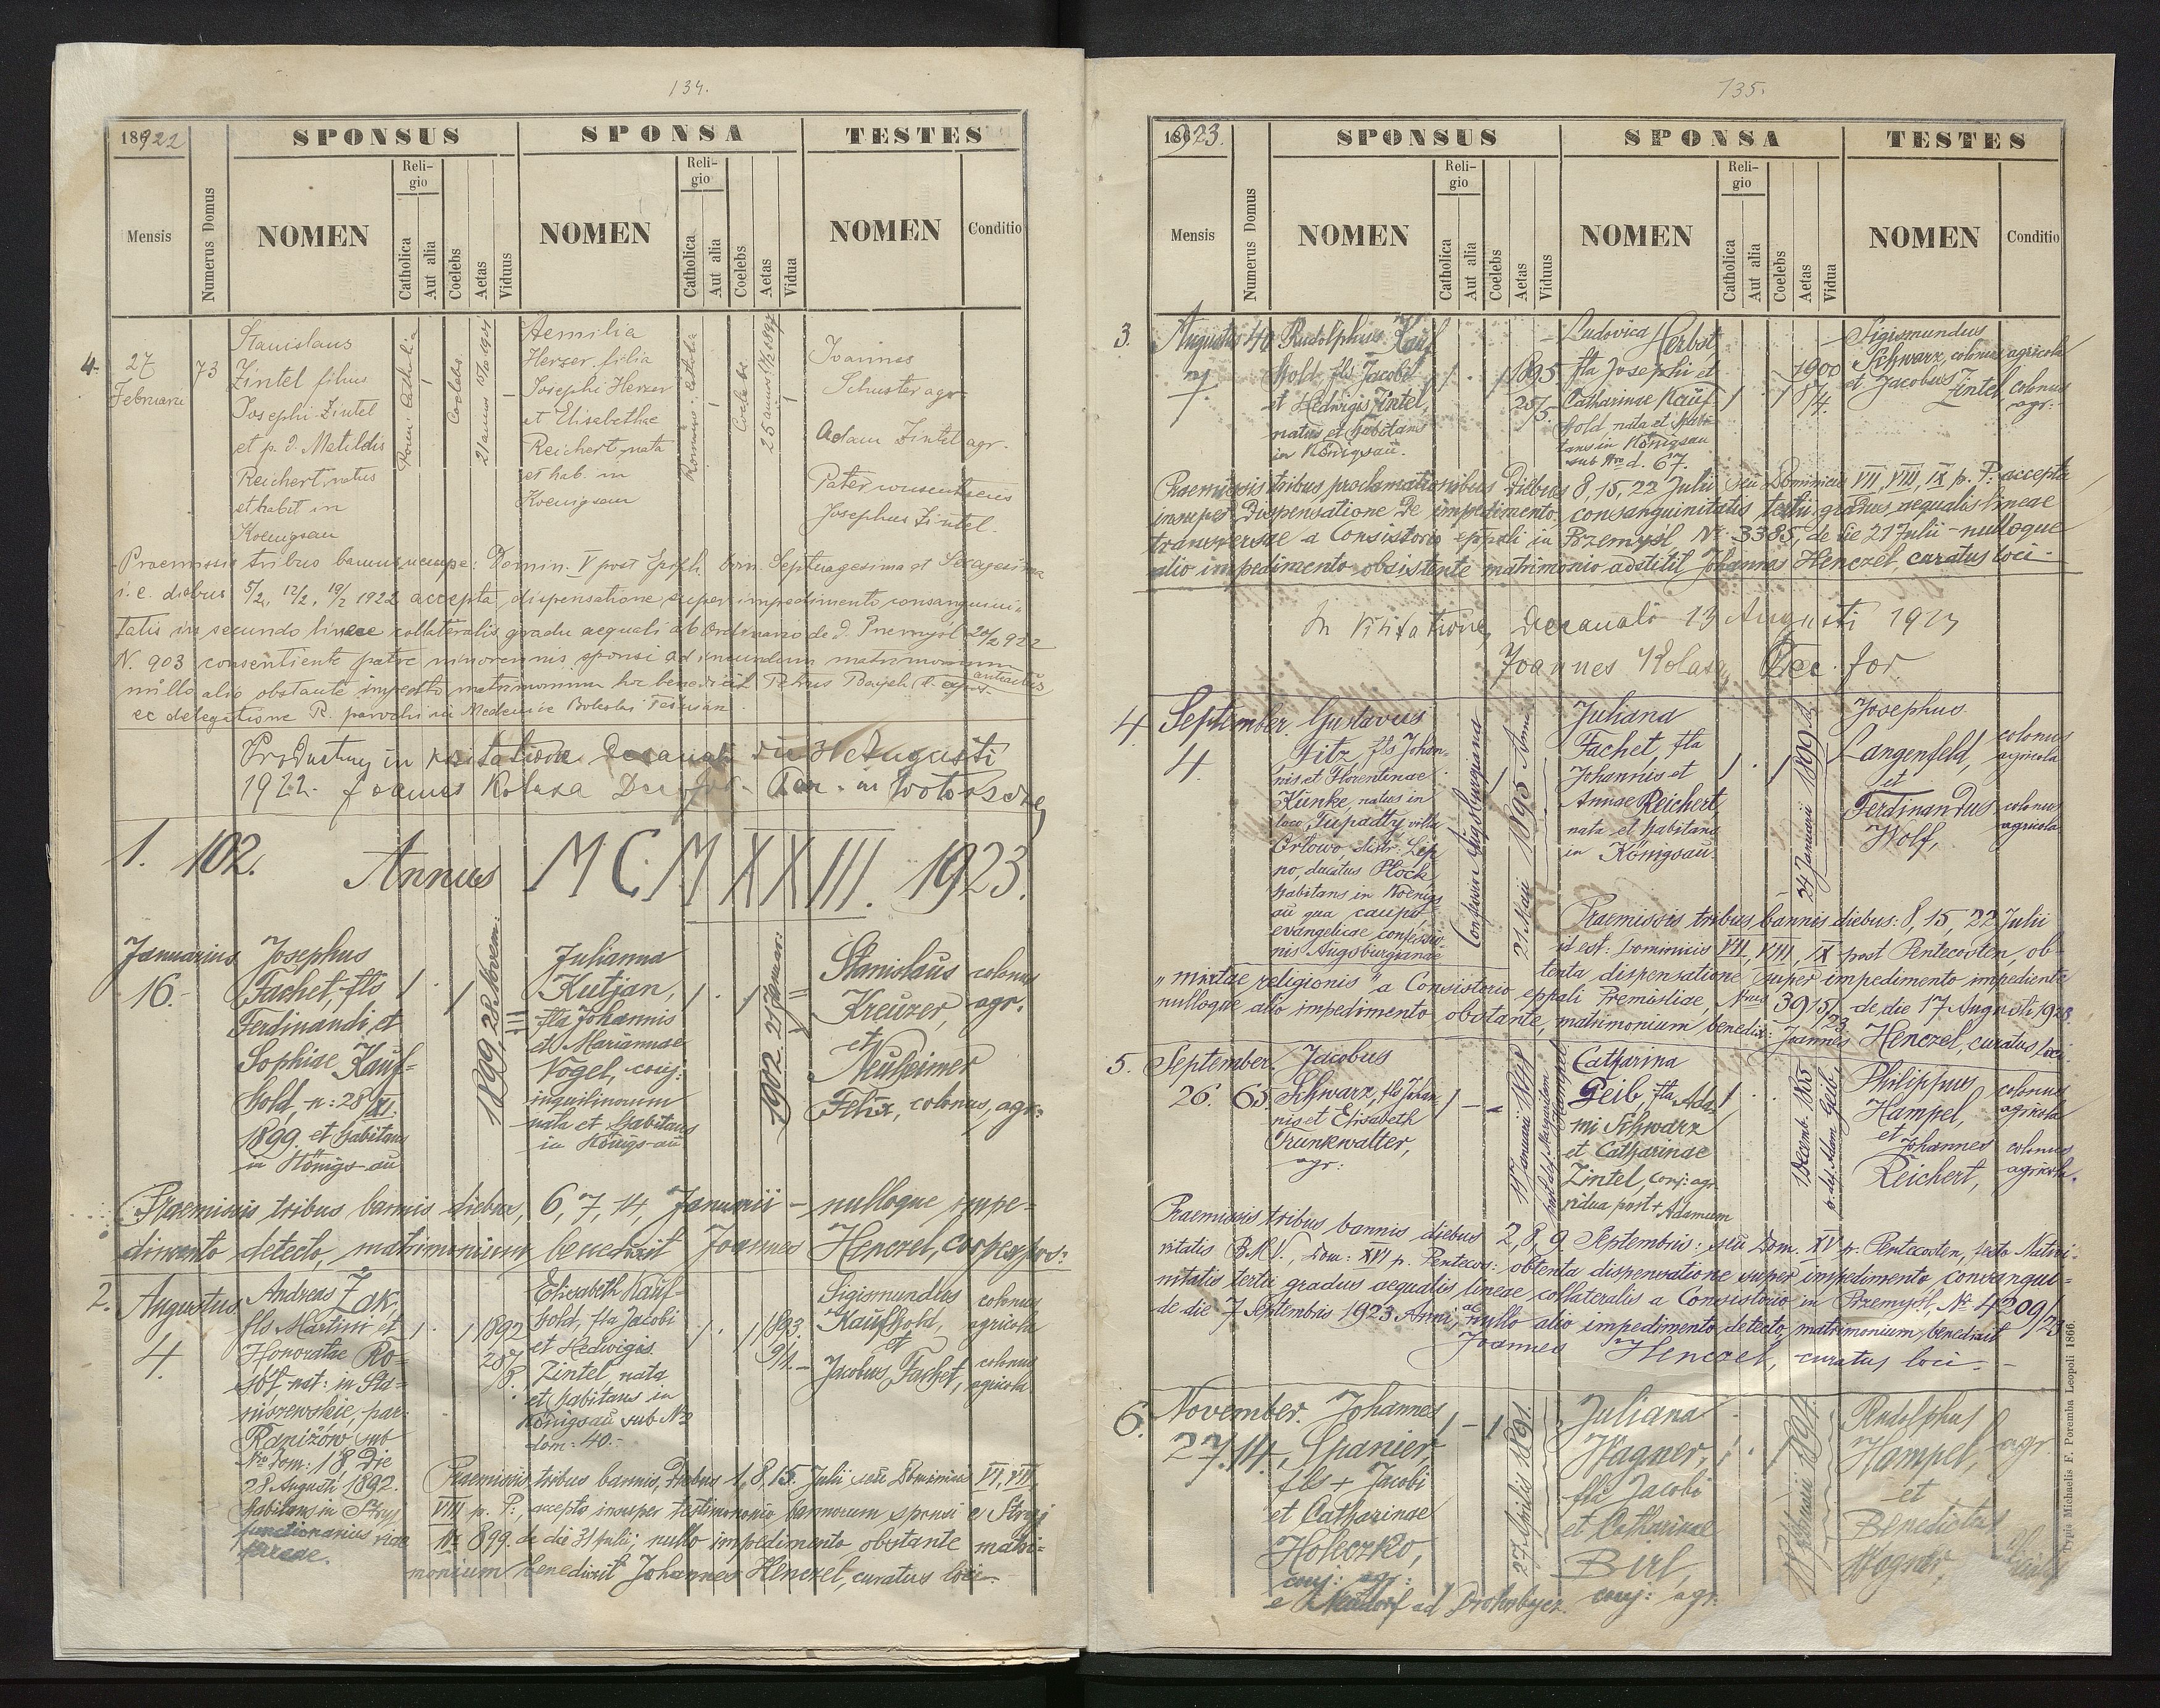 134.
18922
SPONSUS
SPONSA
TESTES
Mensis
Numerus Domus
NOMEN
Religio
Catholica
Aut alia
Coelebs
Aetas
Viduus
NOMEN
Religio
Catholica
Aut alia
Coelebs
Aetas
Vidua
NOMEN
Conditio
4.
27
Februarii
73
Stanislaus
Zintel filius
Josephi Zintel
et p. d. Matildis
Reichert, natus
et habit in
Koenigsau
Coelebs
Aemilia
Herzer, filia
Josephi Herzer
et Elisabethae
Reichert, nata
et hab. in
Koenigsau
Joannes
Schuster agr.
Adam Zintel agr.
Pater consentiens
Josephus Zintel.
Praemissis tribus bannis nempe: Domin. V post Epiph. Dom. Septuagesima et Sexagesima
i. e. diebus 5/2, 12/2, 19/2 1922 accepta dispensatione super impedimento consanguini-
tatis in secundo lineae collateralis gradu aequali ab Ordinario de d. Premysl 20/2 922
N. 903 consentiente patre minorennis sponsi ad ineundum matrimonium
nullo alio obstante impedto matrimonium hoc benedixit Petrus
ex delegatione R. parochi in Medenice Boleslai
Productum in visitatione decanali die Augusti
1922. Joannes Kolasa Dec. for.
1. 102. Annus MCMXXIII. 1923.
Januarius
16.
Josephus
Fachet, fls
Ferdinandi et
Sophiae Kauf-
hold, n: 28/XI.
1899. et habitans
in Königs-au
1899, 28 Novem:
Julianna
Kutjan,
fla Johannis
et Mariannae
Vogel, conj:
inquilinorum
nata et habitans
in Königs-au
1902 25 Januar:
Stanislaus
Kreuzer,
et
Neuheimer
Felix, colonus, agr:
colonus
agr.
Praemissis tribus bannis diebus, 6, 7, 14, Januarii – nulloque impe-
dimento detecto, matrimonium benedixit Joannes Henczel, coop. expos:
2.
Augustus
4.
Andreas Żak,
fls Martini et
Honoratae Ro-
nat: in Sta-
niszewskie, par:
Raniżów sub
Nro dom: 18 die
28 Augusti 1892.
habitans in Stryj
functionarius viae
ferreae.
1892
28/8.
Elisabeth Kauf-
hold, fla Jacobi
et Hedwigis
Zintel, nata
et habitans in
Königsau sub Nro
dom: 40.-
1893.
9/1.
Sigismundus
Kaufhold,
et
Jacobus Fachet,
colonus
agricola
colonus
agricola
Praemissis tribus bannis, diebus 1, 8, 15. Julii seu Dominicis VI, VII,
VIII p. P:, accepto insuper testimonio bannorum sponsi e Stryj
Nr. 899. de die 31 julii, nullo impedimento obstante matri-
monium benedixit Johannes Henczel, curatus loci.
135.
18923.
SPONSUS
SPONSA
TESTES
Mensis
Numerus Domus
NOMEN
Religio
Catholica
Aut alia
Coelebs
Aetas
Viduus
NOMEN
Religio
Catholica
Aut alia
Coelebs
Aetas
Vidua
NOMEN
Conditio
3.
Augustus
7.
40
Rudolphus Kauf
hold, fls Jacobi
et Hedwigis Zintel,
natus et habitans
in Königsau.
1895
25/5.
Ludovica Herbst,
fla Josephi et
Catharinae Kauf
hold nata et habi-
tans in Königsau
sub Nro d. 67.
1900
18/4.
Sigismundus
Schwarz, colonus agricola
et Jacobus Zintel, colonus
agr:
Praemissis tribus proclamationibus diebus 8, 15, 22 Julii seu Dominicis VII, VIII, IX p. P. accepta
insuper dispensatione de impedimento consanguinitatis tertii gradus aequalis lineae
transversae a Consistorio eppali in Przemyśl Nr. 3385, de die 21 Julii – nulloque
alio impedimento obsistente matrimonio adstitit Johannes Henczel, curatus loci.
In Visitatione decanali 13 Augusti 1923
Joannes Kolasa Dec. for.
4.
September.
4.
Gustavus
Fitz, fls Johan-
nis et Florentinae
Kunke, natus in
loco Tupadly, villa
Orlowo, distr: Lip
no, ducatus Plock
habitans in Koenigs
au qua caupo,
evangelicae confessio-
nis Augsburgianae
Confessione Augsburgiana
21 Maii 1895 Anni
Juliana
Fachet, fla
Johannis et
Annae Reichert,
nata et habitans
in Königsau.
24 Januarii 1899
Josephus
Langenfeld,
et
Ferdinandus
Wolf,
colonus
agricola
colonus
agricola
Praemissis tribus bannis diebus: 8, 15, 22 Julii
id est: Dominicis VII, VIII, IX post Pentecosten, ob-
tenta dispensatione super impedimento impediente
"mixtae religionis" a Consistorio eppali Premisliae, Nrus 3915/23 de die 17 Augusti 1923.
nulloque alio impedimento obstante, matrimonium benedix: Joannes Henczel, curatus loci
5.
September.
26.
65.
Jacobus
Schwarz, fls Johan-
nis et Elisabeth
Trunkwalter,
agr:
Catharina
Geib, fla Ada-
mi Schwarz
et Catharinae
Zintel, conj: agr.
vidua post + Adamum
Philippus
Hampel,
et
Johannes
Reichert,
colonus
agricola
colonus
agricola.
Praemissis tribus bannis diebus 2, 8, 9. Septembris: seu Dom. XV p. Pentecosten, festo Nativi-
vitatis B.M.V., Dom: XVI p. Pentecos: obtenta dispensatione super impedimento consangui-
nitatis tertii gradus aequalis lineae collateralis a Consistorio in Przemyśl, Nr. 4209/23
de die 7 Septembris 1923 Anni, ac nullo alio impedimento detecto, matrimonium benedixit
Joannes Henczel, curatus loci.-
6.
November.
27.
14.
Johannes
Spanier,
fls + Jacobi
et Catharinae
Holeczko,
conj: agr:
e Neudorf ad Drohobycz.
27 Aprilis 1891.
Juliana
Wagner,
fla Jacobi
et Catharinae
Birl,
conj: agr:
Rudolphus
Hampel,
et
Benedictus
Wagner,
agr.
Typis Michaelis F. Poremba Leopoli 1866.